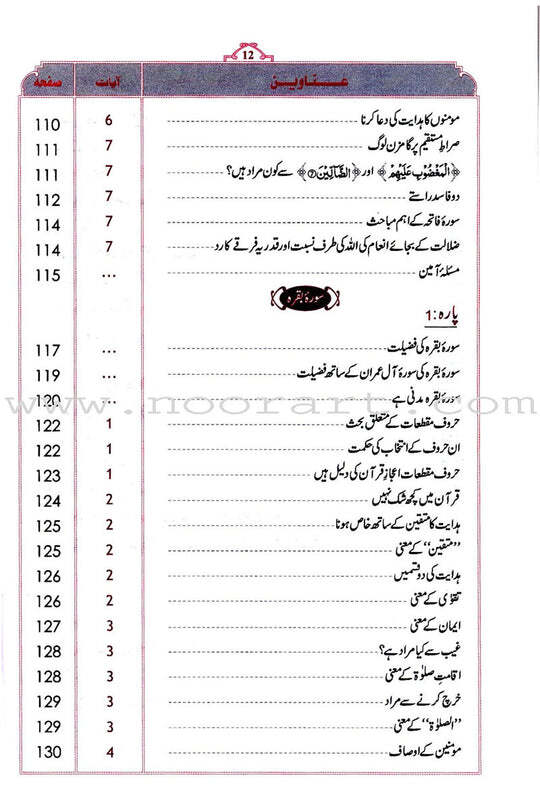 12
عناوین آیات صفحہ
مومنوں کا ہدایت کی دعا کرنا 6 110
صراط مستقیم پر گامزن لوگ 7 111
﴿الْمَغْضُوْبِ عَلَيْهِمْ﴾ اور ﴿الضَّآلِّيْنَ۷﴾ سے کون مراد ہیں؟ 7 111
دو فاسد راستے 7 112
سورۂ فاتحہ کے اہم مباحث 7 114
ضلالت کے بجائے انعام کی اللہ کی طرف نسبت اور قدریہ فرقے کا رد 7 114
مسئلۂ آمین ... 115
سورۂ بقرہ
پارہ: 1
سورۂ بقرہ کی فضیلت ... 117
سورۂ بقرہ کی سورۂ آل عمران کے ساتھ فضیلت ... 119
سورۂ بقرہ مدنی ہے ... 120
www.noorart.com
حروف مقطعات کے متعلق بحث 1 122
ان حروف کے انتخاب کی حکمت 1 122
حروف مقطعات اعجاز قرآن کی دلیل ہیں 1 123
قرآن میں کچھ شک نہیں 2 124
ہدایت کا متقین کے ساتھ خاص ہونا 2 125
”متقین“ کے معنی 2 125
ہدایت کی دو قسمیں 2 126
تقوٰی کے معنی 2 126
ایمان کے معنی 3 127
غیب سے کیا مراد ہے؟ 3 128
اقامتِ صلوٰة کے معنی 3 128
خرچ کرنے سے مراد 3 129
”الصلوٰة“ کے معنی 3 129
مومنین کے اوصاف 4 130